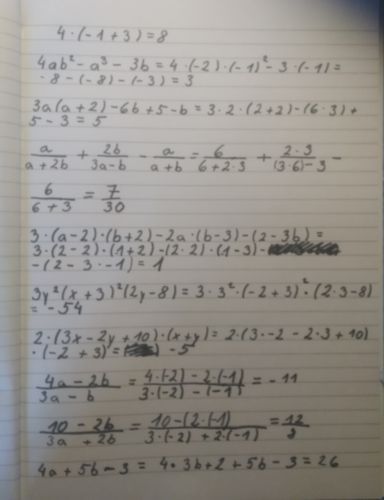 4·(-1+3)=8
4ab²-a³-3b=4·(-2)·(-1)²-3·(-1)=
-8-(-8)-(-3)=3
3a(a+2)-6b+5-b=3·2·(2+2)-(6·3)+
5-3=5
a/(a+2b) + 2b/(3a-b) - a/(a+b) = 6/(6+2·3) + 2·3/((3·6)-3) -
6/(6+3) = 7/30
3·(a-2)·(b+2)-2a·(b-3)-(2-3b)=
3·(2-2)·(1+2)-(2·2)·(1-3)-
-(2-3·-1)=1
3y²(x+3)²(2y-8)=3·3²·(-2+3)²·(2·3-8)
=-54
2·(3x-2y+10)·(x+y)=2·(3·-2-2·3+10)
·(-2+3)=-5
(4a-2b)/(3a-b) = (4·(-2)-2·(-1))/(3·(-2)-(-1)) = -11
(10-2b)/(3a+2b) = (10-(2·(-1))/(3·(-2)+2·(-1)) = 12/
4a+5b-3=4·3b+2+5b-3=26